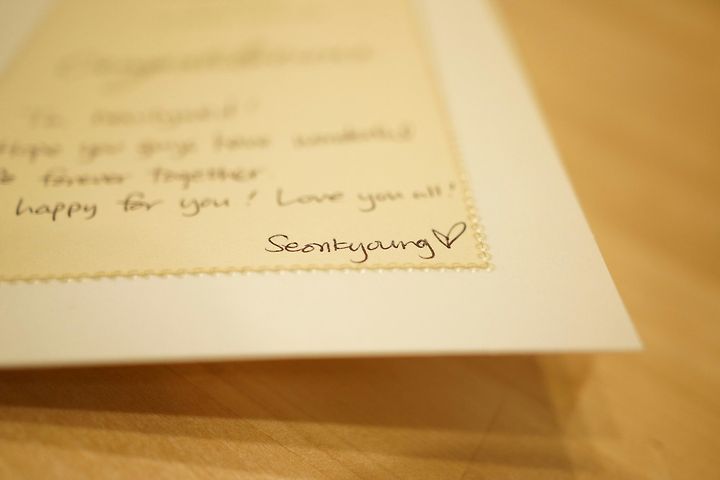 Congratulations
To
hope you guys have wonderful
forever together
happy for you! Love you all!
Seonkyoung♡